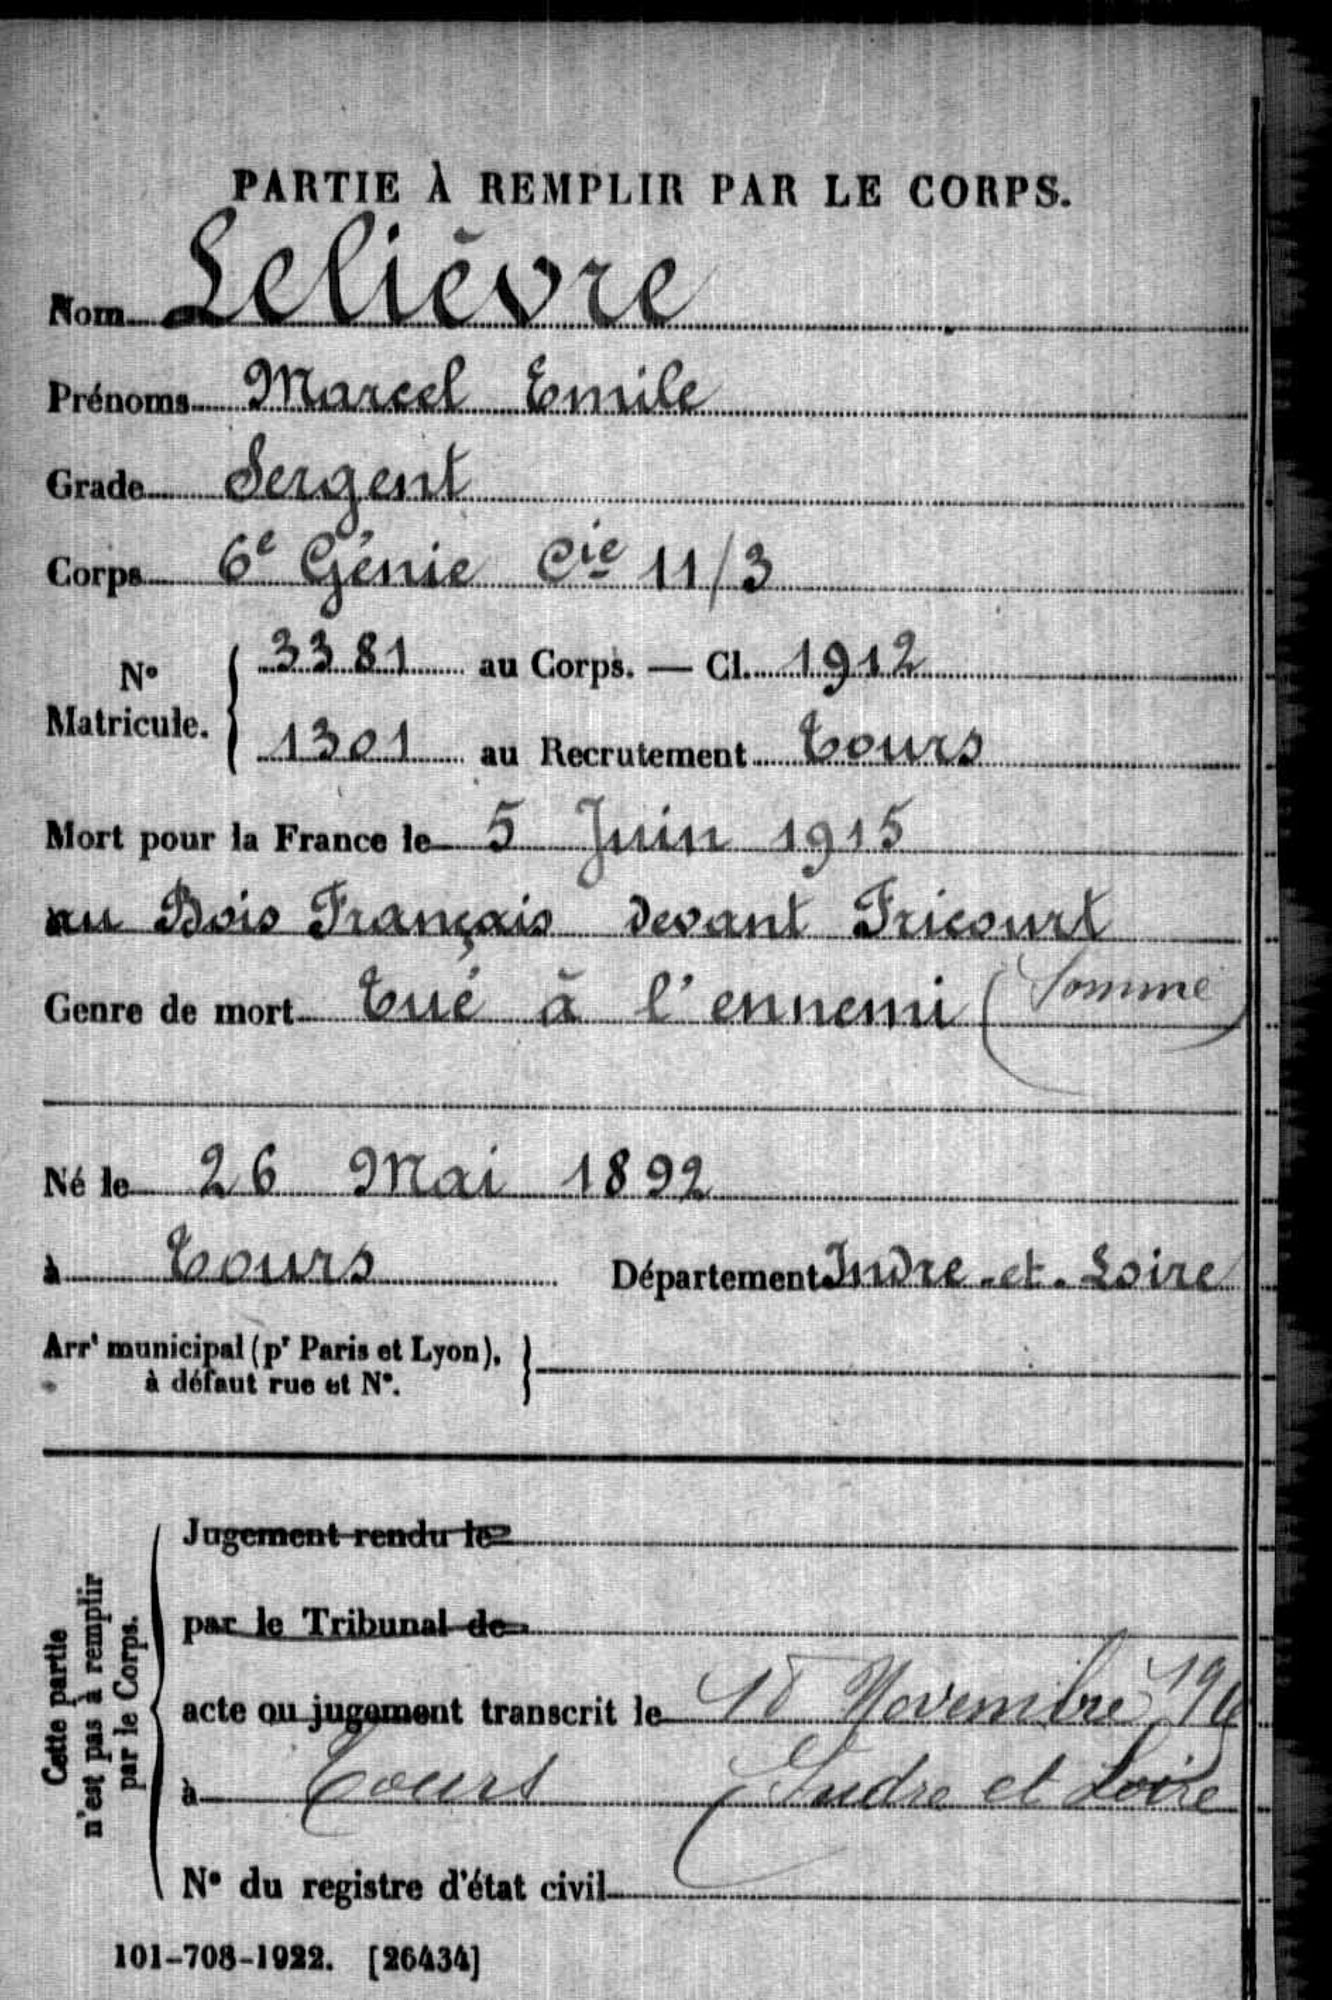 PARTIE À REMPLIR PAR LE CORPS.
Nom Lelièvre
Prénoms Marcel Emile
Grade Sergent
Corps 6e Génie Cie 11/3
N° Matricule. { 3381 au Corps. — Cl. 1912
1301 au Recrutement Tours
Mort pour la France le 5 Juin 1915
au Bois Français devant Fricourt
Genre de mort Tué à l'ennemi (Somme)
Né le 26 Mai 1892
à Tours Département Indre-et-Loire
Arrt municipal (pr Paris et Lyon),
à défaut rue et N°.
Cette partie
n'est pas à remplir
par le Corps.
Jugement rendu le
par le Tribunal de
acte ou jugement transcrit le Novembre
à Tours (Indre et Loire
N° du registre d'état civil
101-708-1922. [26434]